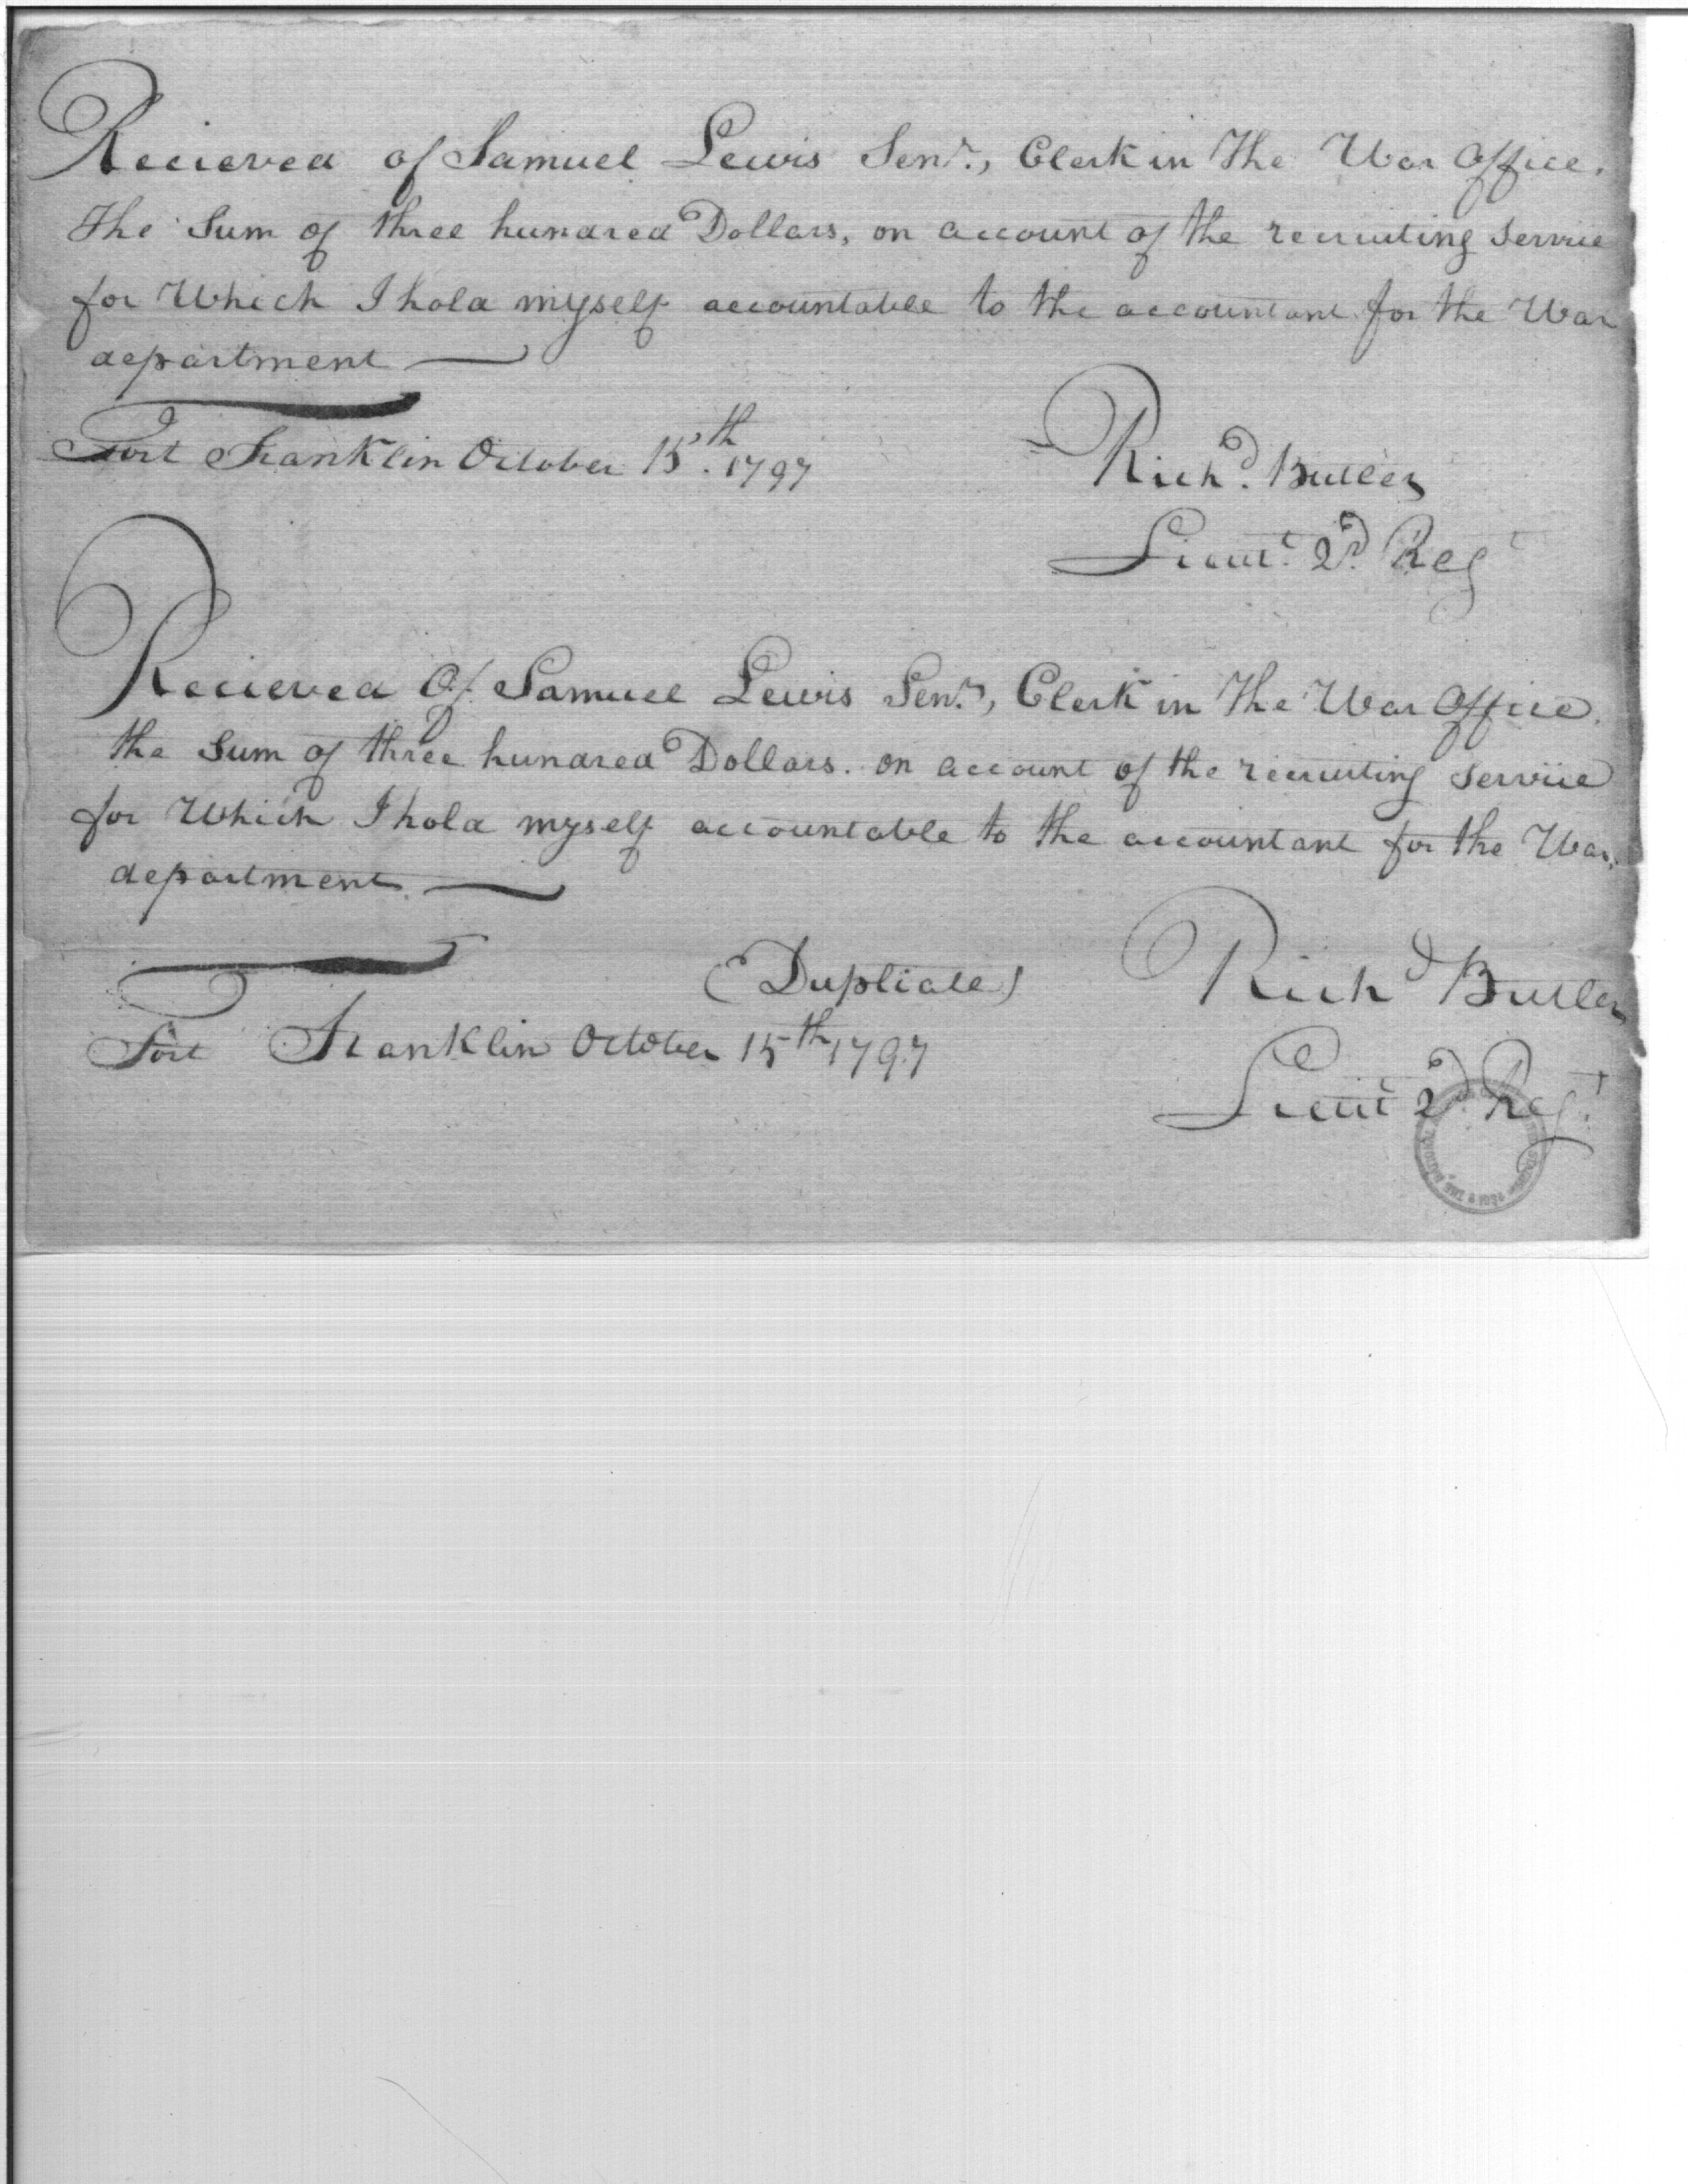 Recieved of Samuel Lewis Senr., Clerk in The War Office.
The Sum of three hundred Dollars, on account of the recruiting service
for Which I hold myself accountable to the accountant for the War
department —
Fort Franklin October 15th. 1797
Richd. Butler
Lieut. 2d. Regt
Recieved Of Samuel Lewis Senr., Clerk in The War Office.
the Sum of three hundred Dollars. on account of the recruiting service
for Which I hold myself accountable to the accountant for the War
department. —
(Duplicate)
Richd Butler
Fort Franklin October 15th 1797
Lieut 2d Regt.